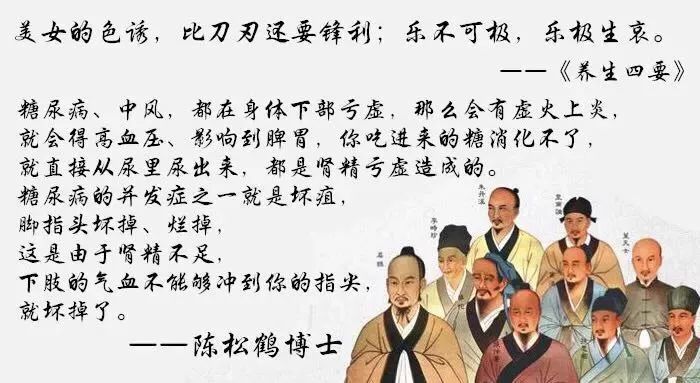 美女的色诱，比刀刃还要锋利；乐不可极，乐极生哀。
——《养生四要》
糖尿病、中风，都在身体下部亏虚，那么会有虚火上炎，
就会得高血压、影响到脾胃，你吃进来的糖消化不了，
就直接从尿里尿出来，都是肾精亏虚造成的。
糖尿病的并发症之一就是坏疽，
脚指头坏掉、烂掉，
这是由于肾精不足，
下肢的气血不能够冲到你的指尖，
就坏掉了。
——陈松鹤博士
朱丹溪
李时珍